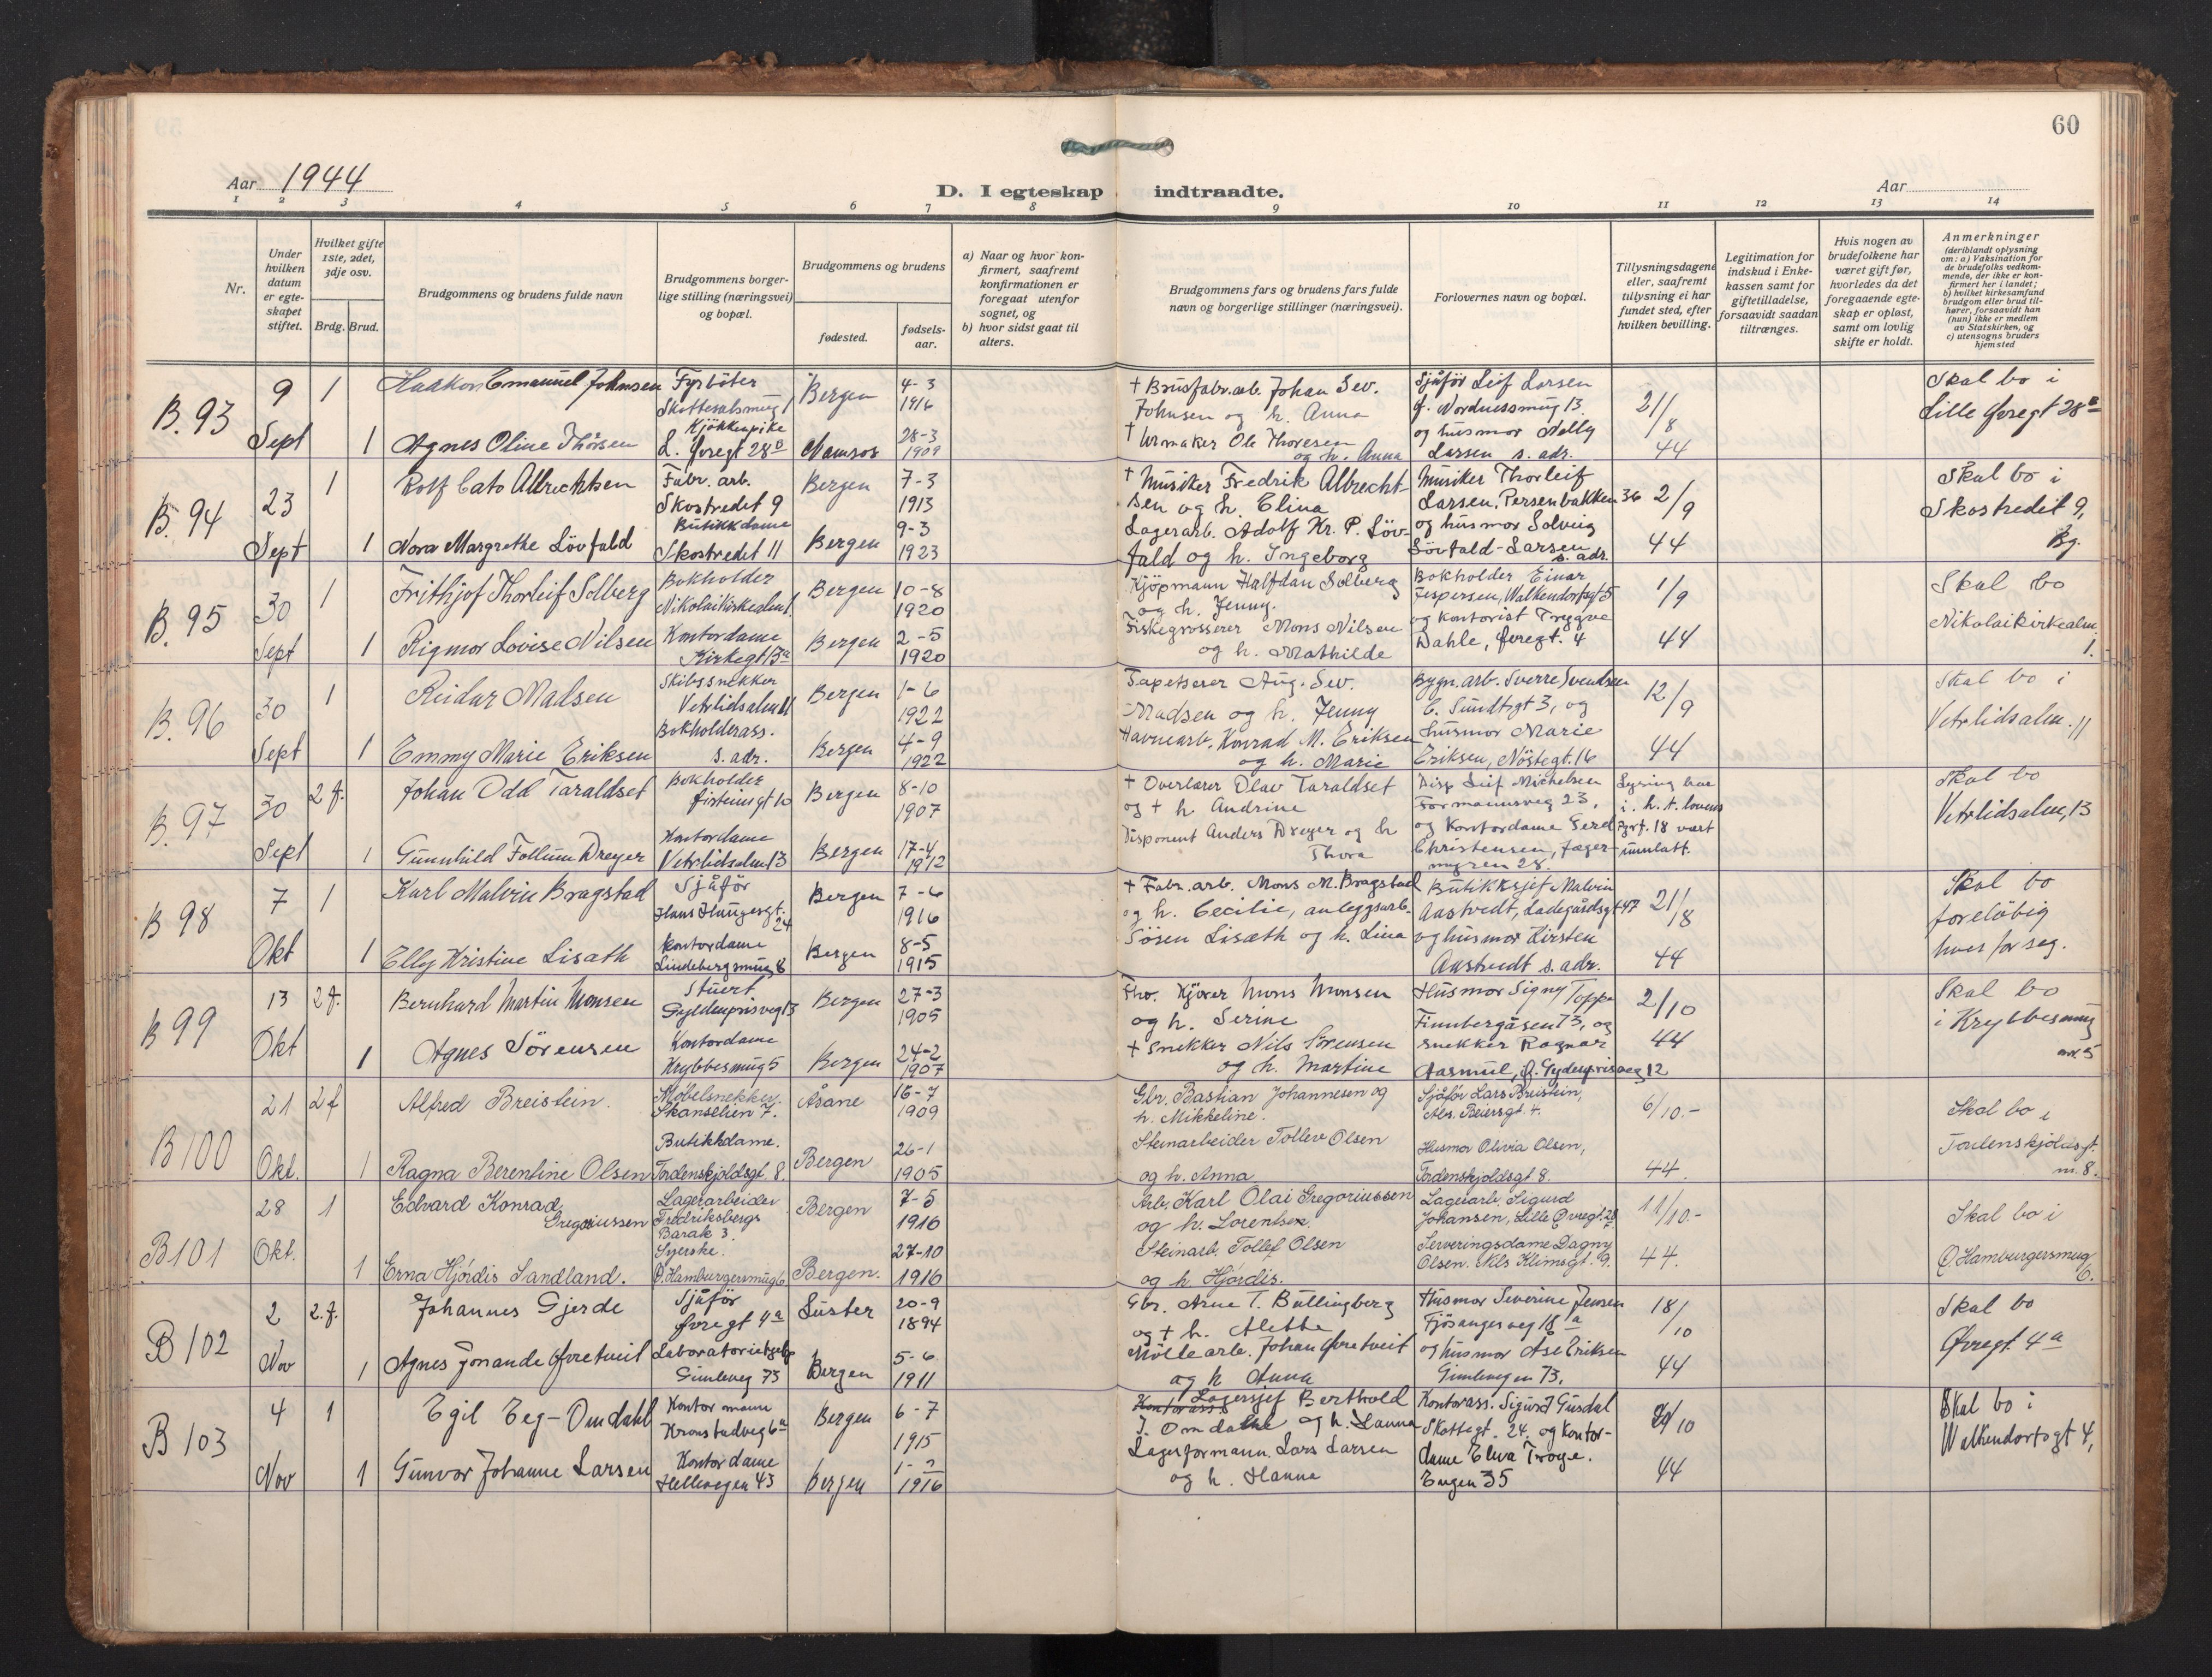 60
Aar 1944
D. I egteskap indtraadte.
Aar
1 2 3 4 5 6 7 8 9 10 11 12 13 14
Nr.
Under hvilken datum er egteskapet stiftet.
Hvilket gifte 1ste, 2det, 3dje osv.
Brdg. Brud.
Brudgommens og brudens fulde navn
Brudgommens borgerlige stilling (næringsvei) og bopæl.
Brudgommens og brudens
fødested.
fødselsaar.
a) Naar og hvor konfirmert, saafremt konfirmationen er foregaat utenfor sognet, og
b) hvor sidst gaat til alters.
Brudgommens fars og brudens fars fulde navn og borgerlige stillinger (næringsvei).
Forlovernes navn og bopæl.
Tillysningsdagene eller, saafremt tillysning ei har fundet sted, efter hvilken bevilling.
Legitimation for indskud i Enkekassen samt for giftetilladelse, forsaavidt saadan tiltrænges.
Hvis nogen av brudefolkene har været gift før, hvorledes da det foregaaende egteskap er opløst, samt om lovlig skifte er holdt.
Anmerkninger
(deriblandt oplysning om: a) Vaksination for de brudefolks vedkommende, der ikke er konfirmert her i landet; b) hvilket kirkesamfund brudgom eller brud tilhører, forsaavidt han (hun) ikke er medlem av Statskirken, og c) utensogns bruders hjemsted
B. 93
9 Sept
1
Haakon Emanuel Johnsen
Fyrbøter
Skottesalsmug 1
Bergen
4-3 1916
1
Agnes Oline Thorsen
Kjøkkenpike
L. Øvregt 28B
Namsos
28-3 1909
+ Brusfabr.arb. Johan Sev.
Johnsen og h. Anna
+ Urmaker Ole Thoresen
og h. Anna
Sjåfør Leif Larsen
Nordnessmug 13
og husmor Nelly
Larsen s. adr.
21/8 44
Skal bo i
Lille Øvregt 28B
B. 94
23 Sept
1
Rolf Cato Albrechtsen
Fabr. arb.
Skostredet 9
Bergen
7-3 1913
1
Nora Margrethe Løvfald
Butikkdame
Skostredet 11
Bergen
9-3 1923
+ Musiker Fredrik Albrecht-
sen og h. Elina
Lagerarb. Adolf Kr. P. Løv-
fald og h. Ingeborg
Musiker Thorleif
Larsen, Persenbakken 36
og husmor Solveig
Løvfald-Larsen
s. adr.
2/9 44
Skal bo i
Skostredet 9,
Bg.
B. 95
30 Sept
1
Frithjof Thorleif Solberg
Bokholder
Nikolaikirkealm. 1
Bergen
10-8 1920
1
Rigmor Lovise Nilsen
Kontordame
Kirkegt 13a
Bergen
2-5 1920
Kjøpmann Halfdan Solberg
og h. Jenny.
Fiskegrosserer Mons Nilsen
og h. Mathilde
Bokholder Einar
Jespersen, Walkendorfsgt 5
og kontorist Trygve
Dahle, Øvregt. 4
1/9 44
Skal bo
Nikolaikirkealm.
1.
B. 96
30 Sept
1
Reidar Madsen
Skibssnekker
Vetrlidsalm 11
Bergen
1-6 1922
1
Emmy Marie Eriksen
Bokholderass.
s. adr.
Bergen
4-9 1922
Tapetserer Aug. Sev.
Madsen og h. Jenny
Havnearb. Konrad M. Eriksen
og h. Marie
Bygn.arb. Sverre Svendsen
C. Sundtsgt 3, og
husmor Marie
Eriksen, Nøstegt. 16
12/9 44
Skal bo i
Vetrlidsalm. 11
B. 97
30 Sept
2 f.
Johan Odd Taraldset
Bokholder
Øisteinsgt 10
Bergen
8-10 1907
1
Gunnhild Follum Dreyer
Kontordame
Vetrlidsalm 13
Bergen
17-4 1912
+ Overlærer Olav Taraldset
og + h Andrine
Disponent Anders Dreyer og h
Thora
Disp Leif Michelsen
Formannsveg 23,
og Kontordame Gerd
Christensen, Jæger-
28.
Lysing har
i. h. t. lovens
18 vært
unnlatt.
Skal bo
Vetrlidsalm, 13
B 98
7 Okt
1
Karl Malvin Bragstad
Sjåfør
Hans Haugesgt.
24
Bergen
7-6 1916
1
Elly Kristine Lisæth
Kontordame
Lindebergsmug 8
Bergen
8-5 1915
+ Fabr. arb. Mons M. Bragstad
og h. Cecilie, anleggsarb.
Lisæth og h. Lina
Butikksjef Malvin
Aastvedt, Ladegårdsgt 47
og husmor Kirsten
Aastvedt s. adr.
21/8 44
Skal bo
foreløbig
hver for seg.
B 99
13 Okt
2 f.
Bernhard Martin Monsen
Stuert
Gyldenprisveg 13
Bergen
27-3 1905
1
Agnes Sørensen
Kontordame
Krybbesmug 5
Bergen
24-2 1907
Fhv. Kjører Mons Monsen
og h. Serine
+ Snekker Nils Sørensen
og h. Martine
Husmor Signy Toppe
Finnbergåsen 73, og
snekker Ragnar
Aasmul, Ø. Gyldenprisveg 12
2/10 44
Skal bo
i Krybbesmug
nr 5
B 100
21 Okt.
2 f
Alfred Breistein.
Møbelsnekker.
Skanselien 7.
Åsane
16-7 1909
1
Ragna Berentine Olsen
Butikkdame.
Tordenskjoldsgt. 8.
Bergen
26-1 1905
Gbr. Bastian Johannesen og
h. Mikkeline.
Steinarbeider Tollev Olsen
og h. Anna
Sjåfør Lars Breistein,
Abs. Beiersgt. 4.
Husmor Olivia Olsen,
Tordenskjoldsgt 8.
6/10.- 44.
Skal bo i
Tordenskjoldsgt.
nr. 8.
B 101
28 Okt.
1
Edvard Konrad
Gregoriussen
Lagerarbeider
Fredriksbergs
Barak 3.
Bergen
7-5 1916
1
Erna Hjørdis Sandland.
Syerske.
Ø. Hamburgersmug 6
Bergen.
27-10 1916
Arb. Karl Olai Gregoriussen
og h. Lorentse.
Steinarb. Tollef Olsen
og h. Hjørdis.
Lagerarb. Sigurd
Johansen, Lille Øvregt. 28
Serveringsdame Dagny
Olsen. Nils Klimsgt. 9.
11/10.- 44.
Skal bo i
Ø. Hamburgersmug
6.
B 102
2 Nov
2. f.
Johannes Gjerde
Sjåfør
Øvregt 4a
Luster
20-9 1894
1
Agnes Jonande Øvretveit
Laboratoriehjelp
Gimleveg 73
Bergen
5-6 1911
Gbr. Arne T. Bullingberg
og + h. Alethe
Møllearb. Johan Øvretveit
og h Anna
Husmor Severine Jensen
Fjøsangerveg 18a
og husmor Åse Eriksen
Gimlevegen 73.
18/10 44
Skal bo
Øvregt. 4a
B 103
4 Nov
1
Egil Eeg-Omdahl
Kontormann
Kronstadveg 6a
Bergen
6-7 1915
1
Gunvor Johanne Larsen
Kontordame
Hellevegen 43
Bergen
1916
Lagersjef Berthold
J. Omdahl og h. Hanna
Lagerformann. Lars Larsen
og h. Hanna
Kontorass. Sigurd Gusdal
Skottegt. 24. og Kontor-
dame Elva Troye.
Engen 35
/10 44
Skal bo i
Walkendorfsgt 4,